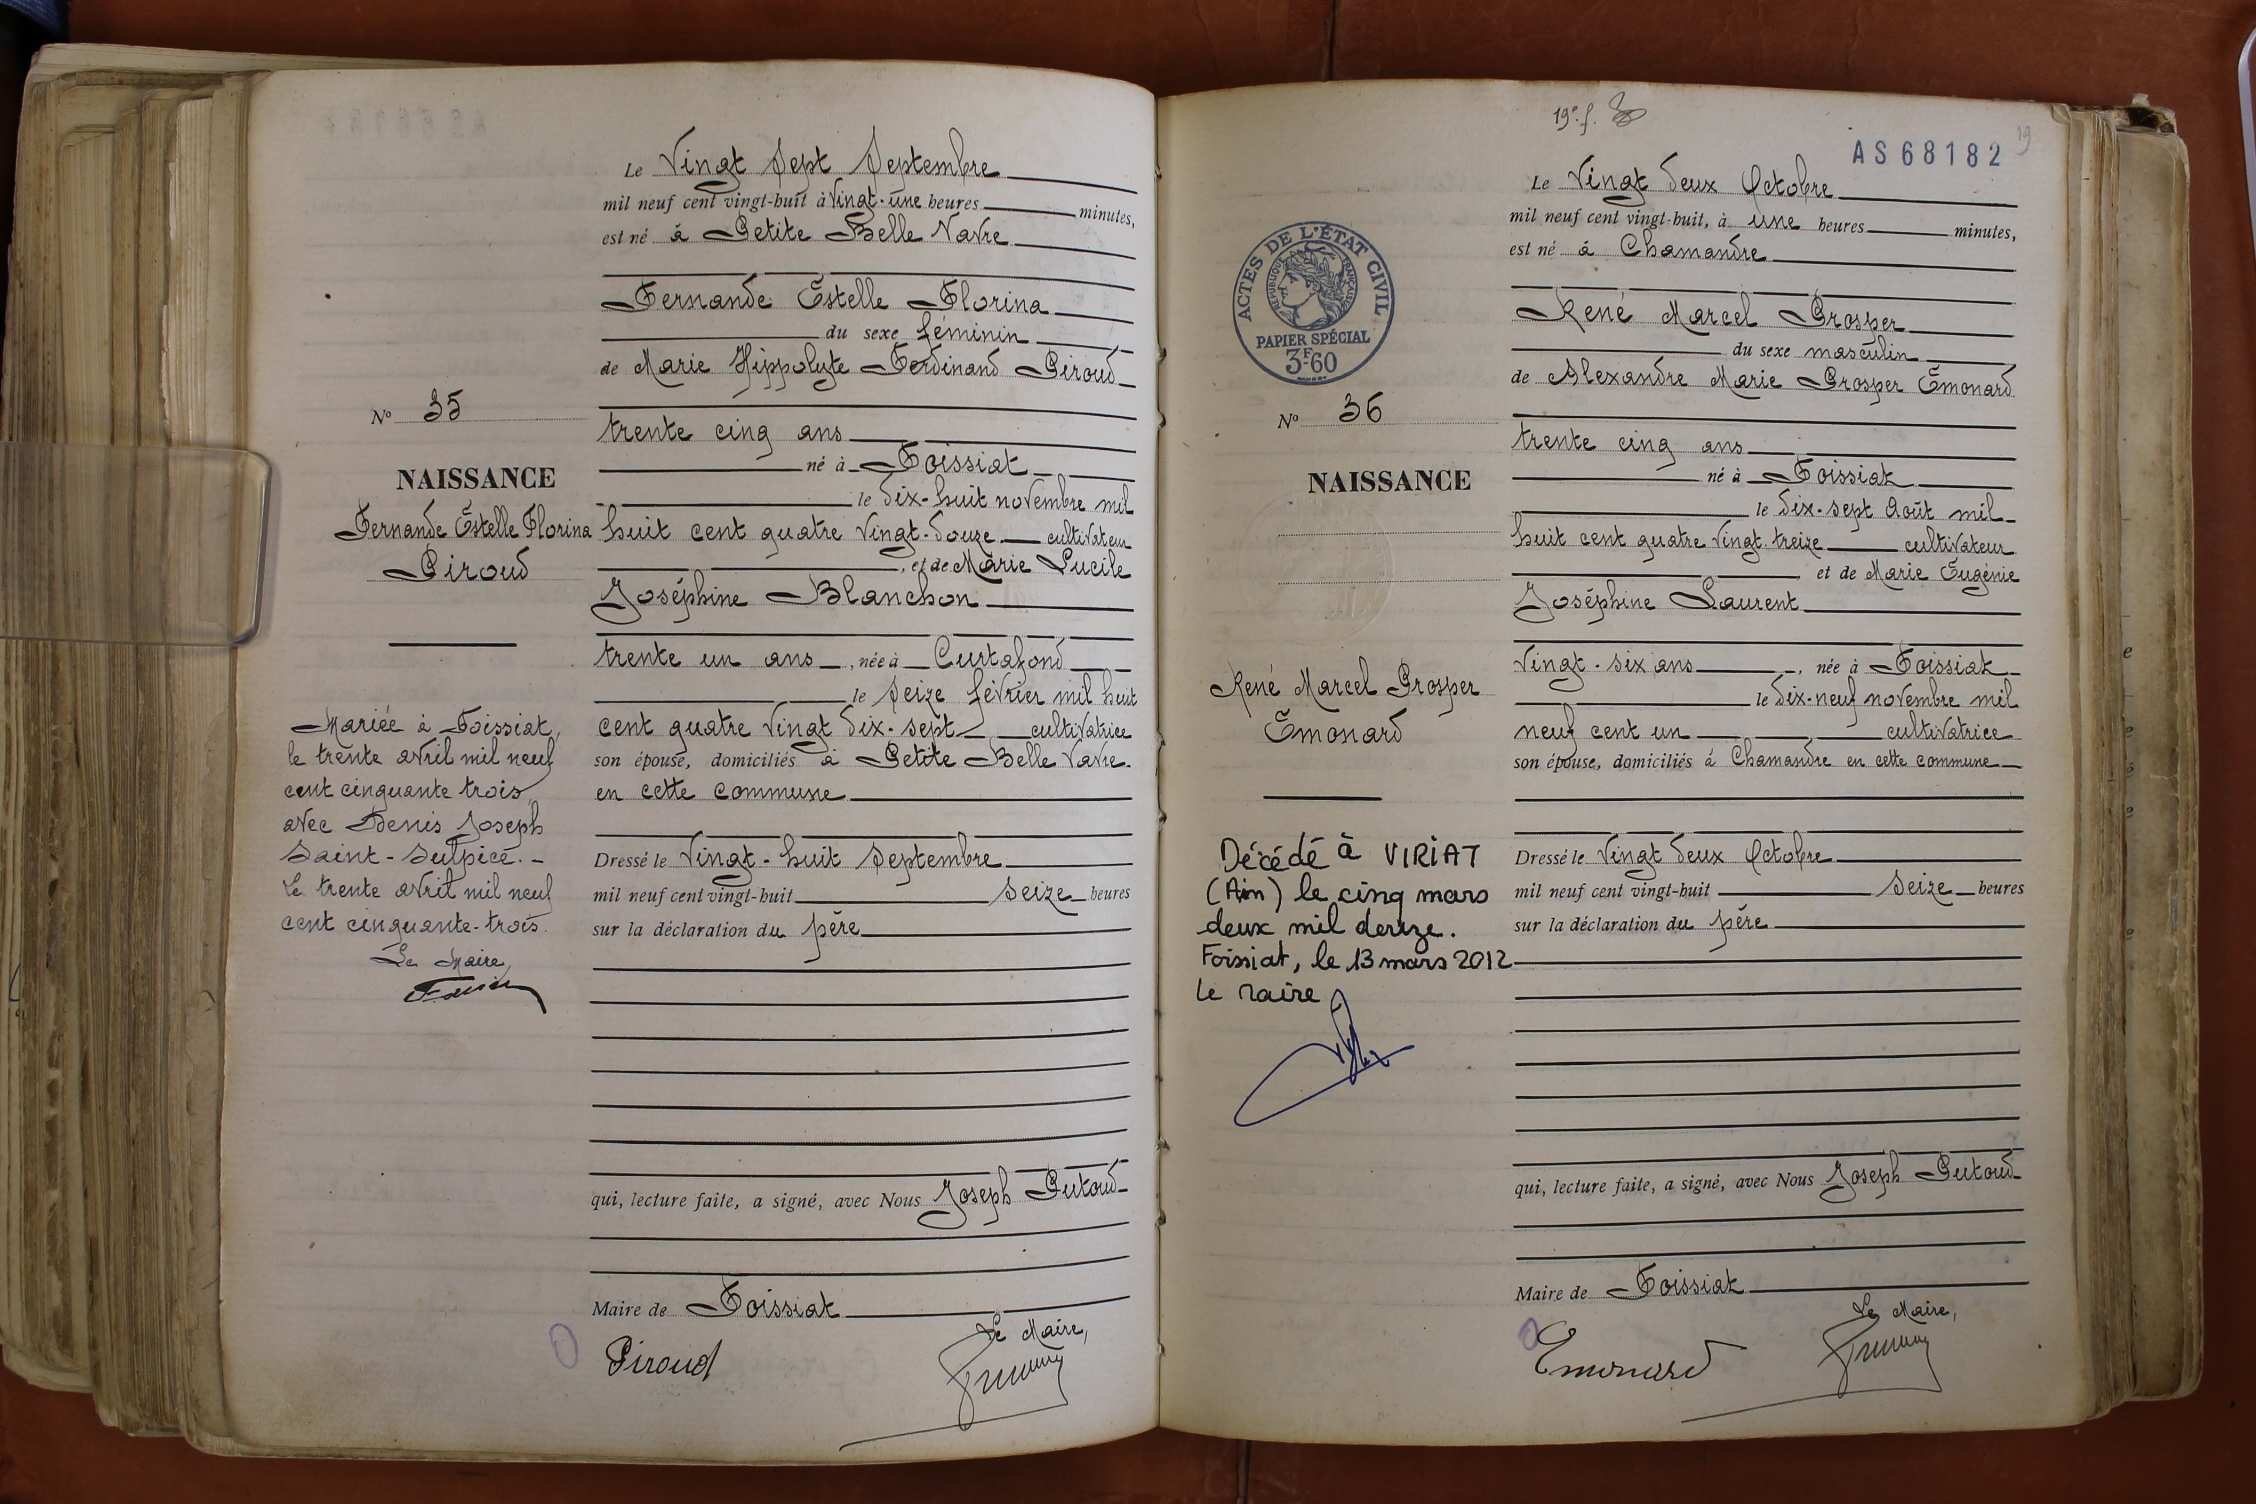 Le Vingt Sept Septembre
mil neuf cent vingt-huit à Vingt-une heures minutes,
est né à Petite Belle Vavre
Fernande Estelle Florina
du sexe féminin
de Marie Hippolyte Ferdinand Piroud
N° 35
trente cinq ans
né à Foissiat
NAISSANCE
le dix-huit novembre mil
Fernande Estelle Florina
huit cent quatre Vingt-douze cultivateur
Piroud
, et de Marie Lucile
Joséphine Blanchon
trente un ans, née à Curtafond
le Seize février mil huit
cent quatre Vingt dix-sept cultivatrice
son épouse, domiciliés à Petite Belle Vavre
en cette commune
Mariée à Foissiat,
le trente avril mil neuf
cent cinquante trois
avec Denis Joseph
Saint-Sulpice.-
Le trente avril mil neuf
cent cinquante-trois.
Le Maire,
Dressé le Vingt-huit Septembre
mil neuf cent vingt-huit Seize heures
sur la déclaration du père
qui, lecture faite, a signé, avec Nous Joseph Putoud
Maire de Foissiat
Le Maire,
Piroud
19e f.
AS 68182
19
Le Vingt deux Octobre
mil neuf cent vingt-huit, à une heures minutes,
est né à Chamandre
ACTES DE L'ÉTAT CIVIL
RÉPUBLIQUE FRANÇAISE
PAPIER SPÉCIAL
3F.60
René Marcel Prosper
du sexe masculin
de Alexandre Marie Prosper Emonard
N° 36
trente cinq ans
né à Foissiat
NAISSANCE
le dix-sept Août mil
huit cent quatre Vingt treize cultivateur
, et de Marie Eugénie
Joséphine Laurent
Vingt-six ans, née à Foissiat
le dix-neuf novembre mil
neuf cent un cultivatrice
son épouse, domiciliés à Chamandre en cette commune
René Marcel Prosper
Emonard
Décédé à VIRIAT
(Ain) le cinq mars
deux mil douze.
Foissiat, le 13 mars 2012
Le Maire
Dressé le Vingt deux Octobre
mil neuf cent vingt-huit Seize heures
sur la déclaration du père
qui, lecture faite, a signé, avec Nous Joseph Putoud
Maire de Foissiat
Le Maire,
Emonard